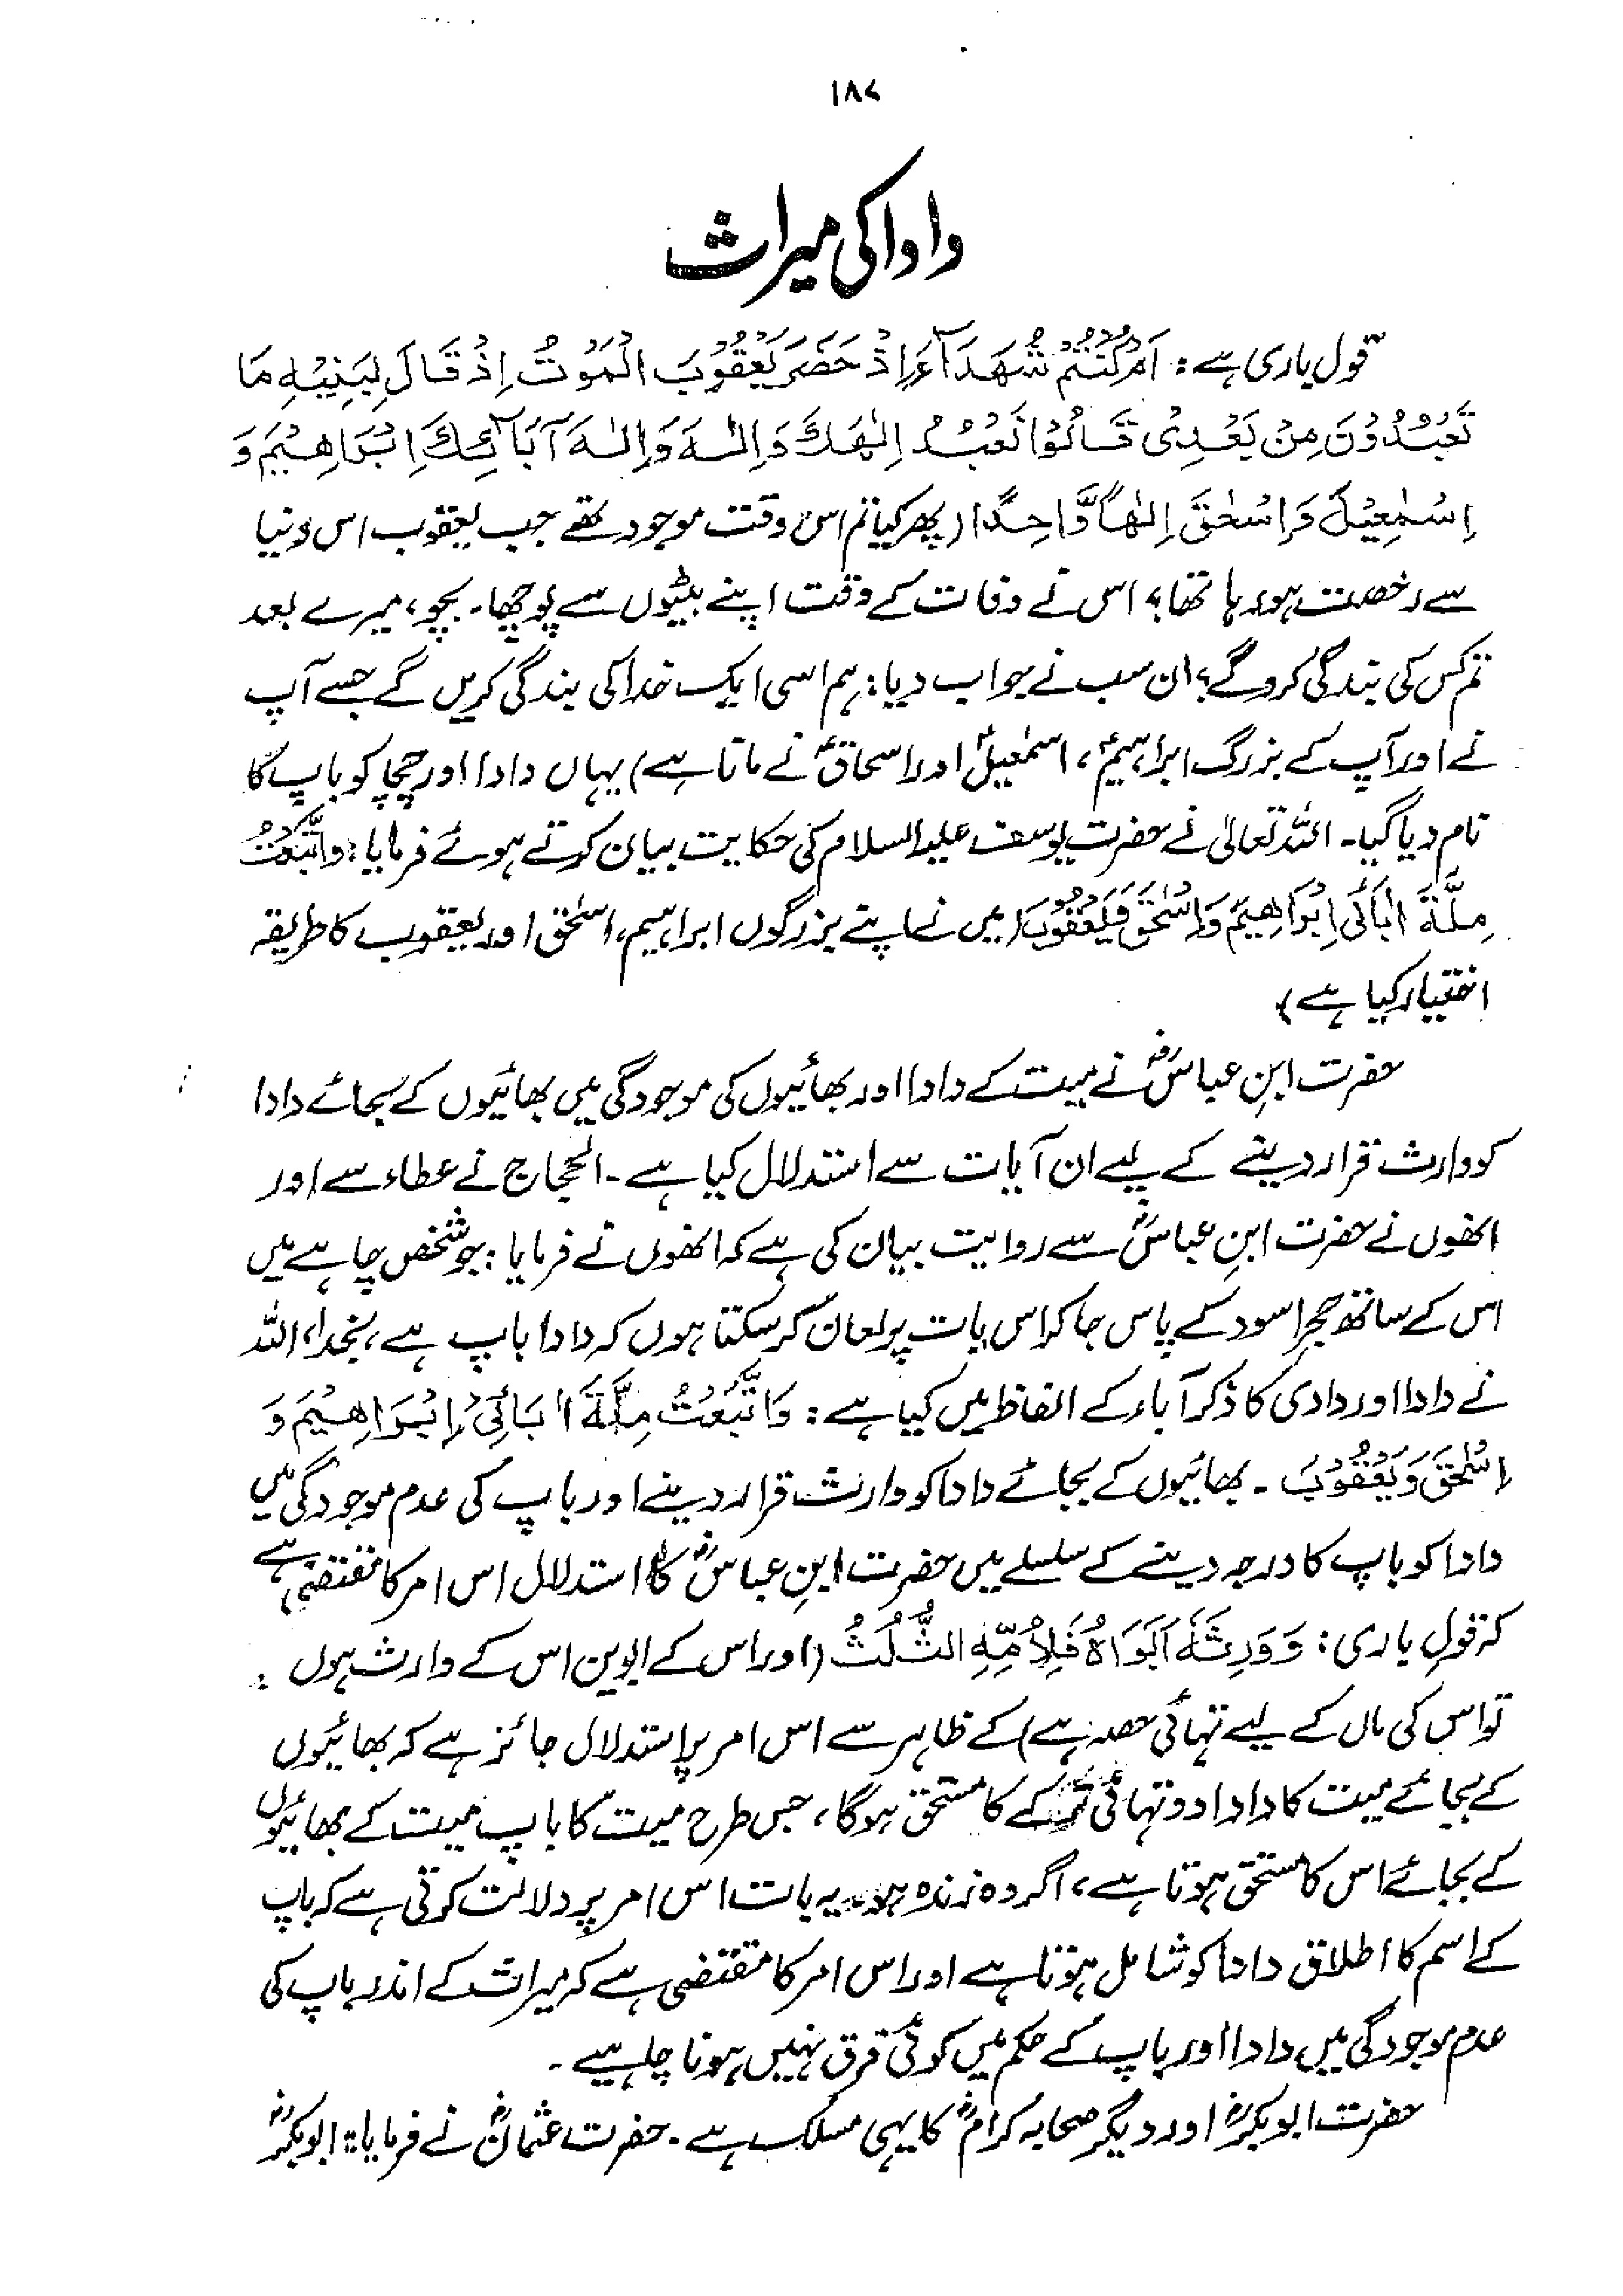 ۱۸۷
دادا کی میراث
قول باری ہے: اَمْ كُنْتُمْ شُهَدَآءَ اِذْ حَضَرَ يَعْقُوْبَ الْمَوْتُ اِذْ قَالَ لِبَنِيْهِ مَا
تَعْبُدُوْنَ مِنْ بَعْدِىْ قَالُوْا نَعْبُدُ اِلٰهَكَ وَاِلٰهَ وَاِلٰهَ آبَآئِكَ اِبْرَاهِيْمَ وَ
اِسْمٰعِيْلَ وَاِسْحٰقَ اِلٰهًا وَّاحِدًا (پھر کیا تم اس وقت موجود تھے جب یعقوب اس دنیا
سے رخصت ہو رہا تھا؟ اس نے وفات کے وقت اپنے بیٹوں سے پوچھا۔ بچو، میرے بعد
تم کس کی بندگی کرو گے؟ ان سب نے جواب دیا: ہم اسی ایک خدا کی بندگی کریں گے جسے آپ
نے اور آپ کے بزرگ ابراہیمؑ، اسمٰعیلؑ اور اسحاقؑ نے مانا ہے) یہاں دادا اور چچا کو باپ کا
نام دیا گیا۔ اللہ تعالیٰ نے حضرت یوسف علیہ السلام کی حکایت بیان کرتے ہوئے فرمایا: وَاتَّبَعْتُ
مِلَّةَ اٰبَائِى اِبْرَاهِيْمَ وَاِسْحٰقَ وَيَعْقُوْبَ (میں نے اپنے بزرگوں ابراہیم، اسحٰق اور یعقوب کا طریقہ
اختیار کیا ہے)
حضرت ابنِ عباسؓ نے میت کے دادا اور بھائیوں کی موجودگی میں بھائیوں کے بجائے دادا
کو وارث قرار دینے کے لیے ان آیات سے استدلال کیا ہے۔ الحجاج نے عطاء سے اور
انھوں نے حضرت ابنِ عباسؓ سے روایت بیان کی ہے کہ انھوں نے فرمایا: جو شخص چاہے میں
اس کے ساتھ حجرِ اسود کے پاس جا کر اس بات پر لعان کر سکتا ہوں کہ دادا باپ ہے، بخدا، اللہ
نے دادا اور دادی کا ذکر آباء کے الفاظ میں کیا ہے: وَاتَّبَعْتُ مِلَّةَ اٰبَائِىْ اِبْرَاهِيْمَ وَ
اِسْحٰقَ وَيَعْقُوْبَ ۔ بھائیوں کے بجائے دادا کو وارث قرار دینے اور باپ کی عدم موجودگی میں
دادا کو باپ کا درجہ دینے کے سلسلے میں حضرت ابنِ عباسؓ کا استدلال اس امر کا مقتضی ہے
کہ قولِ باری: وَوَرِثَهٗ اَبَوَاهُ فَلِاُمِّهِ الثُّلُثُ (اور اس کے ابوین اس کے وارث ہوں
تو اس کی ماں کے لیے تہائی حصہ ہے) کے ظاہر سے اس امر پر استدلال جائز ہے کہ بھائیوں
کے بجائے میت کا دادا دو تہائی ترکے کا مستحق ہوگا، جس طرح میت کا باپ میت کے بھائیوں
کے بجائے اس کا مستحق ہوتا ہے، اگر وہ زندہ ہو۔ یہ بات اس امر پر دلالت کرتی ہے کہ باپ
کے اسم کا اطلاق دادا کو شامل ہوتا ہے اور اس امر کا مقتضی ہے کہ میراث کے اندر باپ کی
عدم موجودگی میں دادا اور باپ کے حکم میں کوئی فرق نہیں ہونا چاہیے۔
حضرت ابوبکرؓ اور دیگر صحابہ کرامؓ کا یہی مسلک ہے۔ حضرت عثمانؓ نے فرمایا: ابوبکرؓ